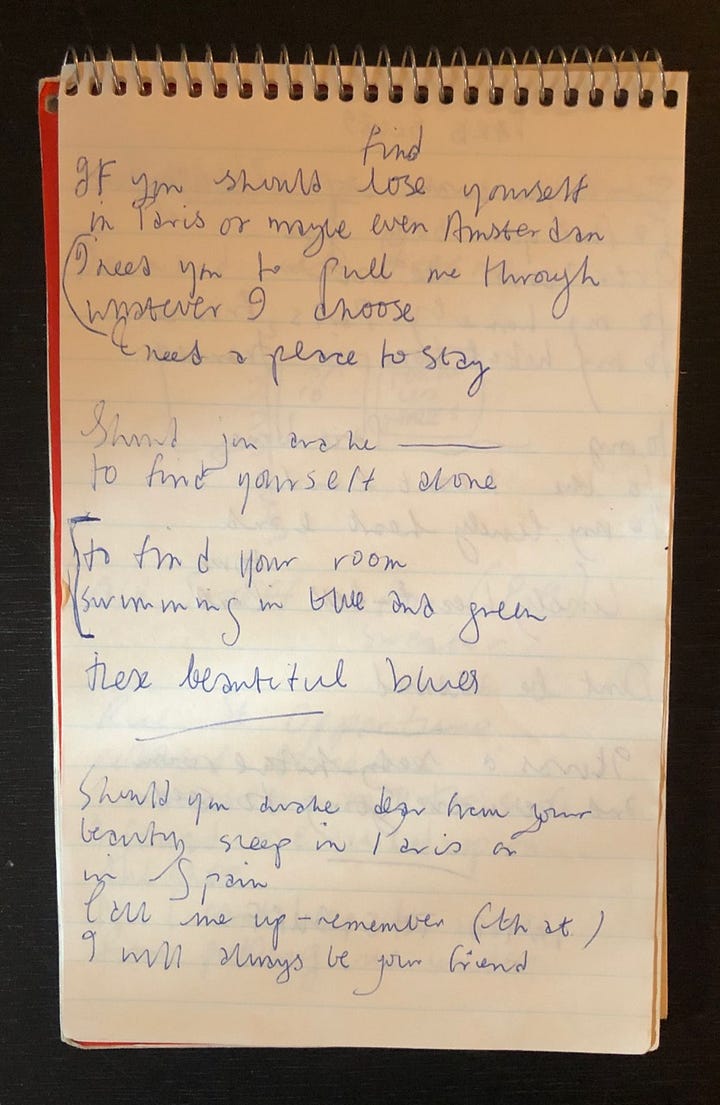 find
If you should lose yourself
in Paris or maybe even Amsterdam
I need you to pull me through
whatever I choose
I need a place to stay
Should you awake
to find yourself alone
to find your room
swimming in blue and green
these beautiful blues
Should you awake dear from your
beauty sleep in Paris or
in Spain
Call me up - remember (that)
I will always be your friend